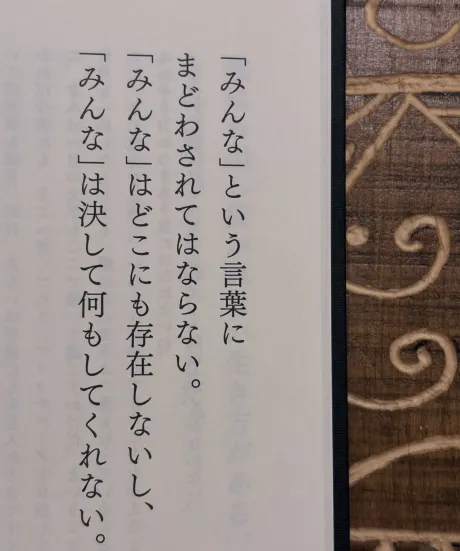 「みんな」という言葉に
まどわされてはならない。
「みんな」はどこにも存在しないし、
「みんな」は決して何もしてくれない。